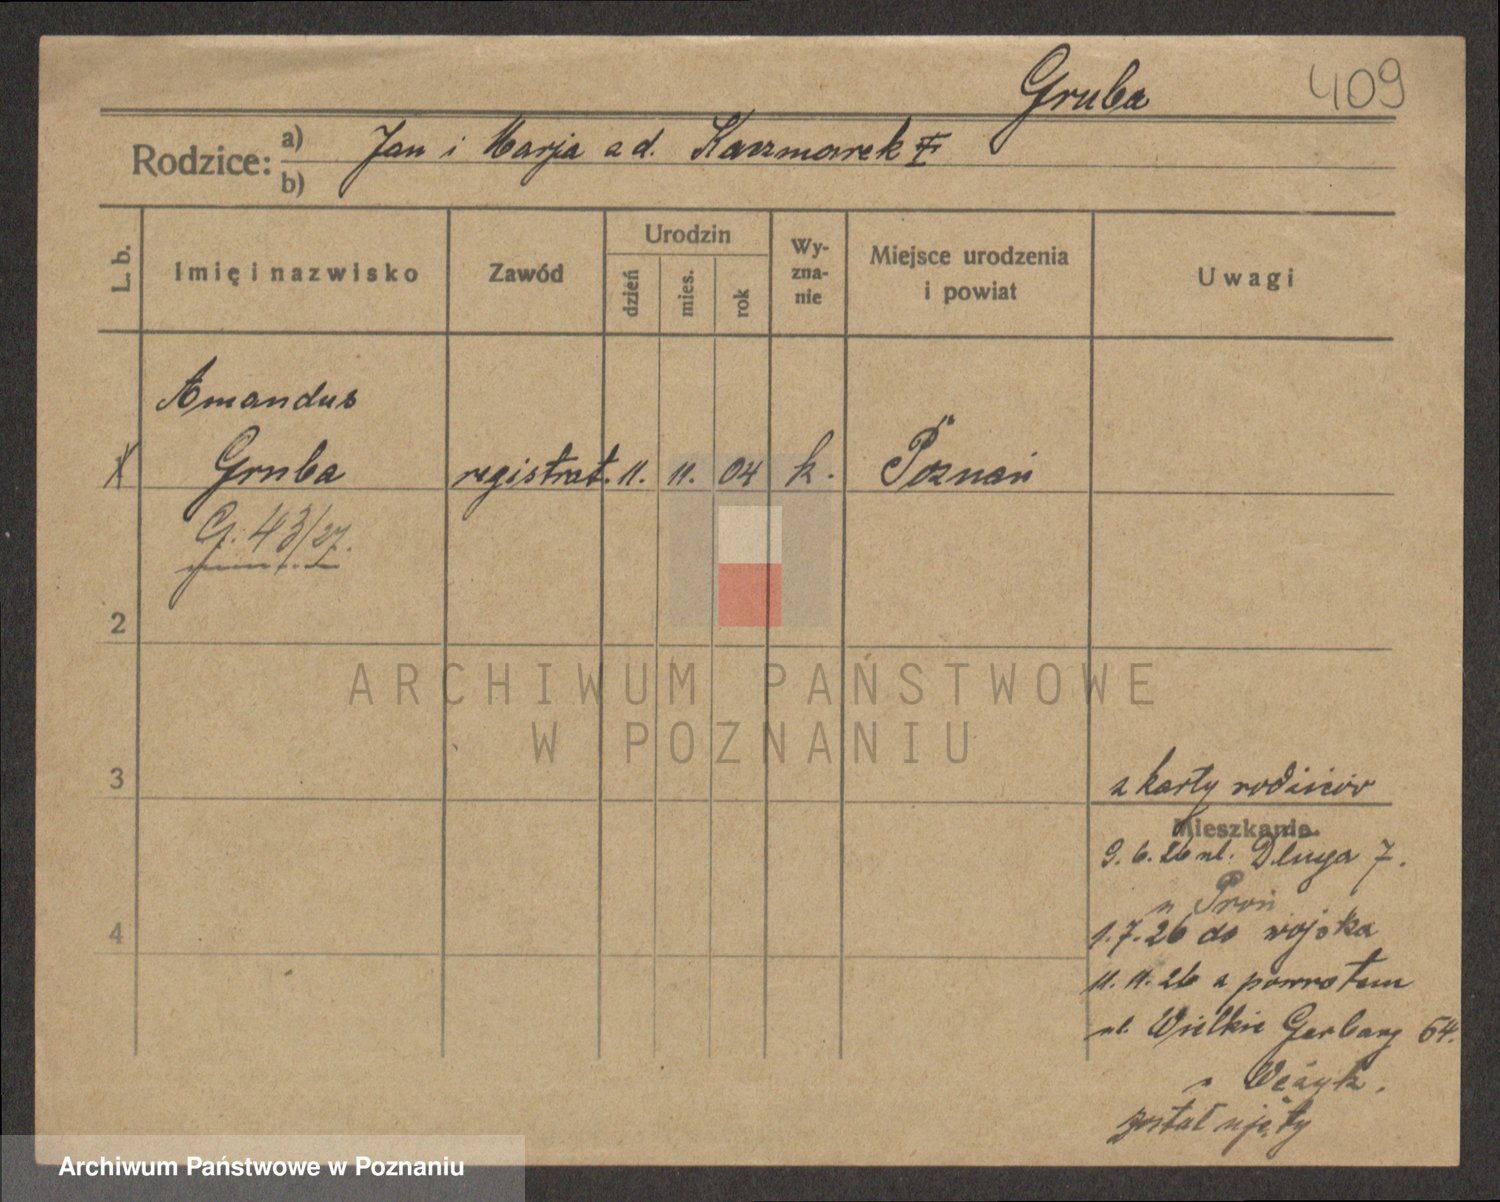 Gruba
409
Rodzice:
a) Jan i Marja z d. Kaczmarek
b)
L. b.
Imię i nazwisko
Zawód
Urodzin
dzień
mies.
rok
Wy-
zna-
nie
Miejsce urodzenia
i powiat
Uwagi
Amandus
Gruba registrat. 11. 11. 04 k. Poznań
G. 43/27.
2
3
4
z karty rodziców
Mieszkanie
9. 6. 26 ul. Długa 7.
1. 7. 26 do wojska
11. 11. 26 z powrotem
ul. Wielkie Garbary 54.
został ujęty
ARCHIWUM PAŃSTWOWE
W POZNANIU
Archiwum Państwowe w Poznaniu